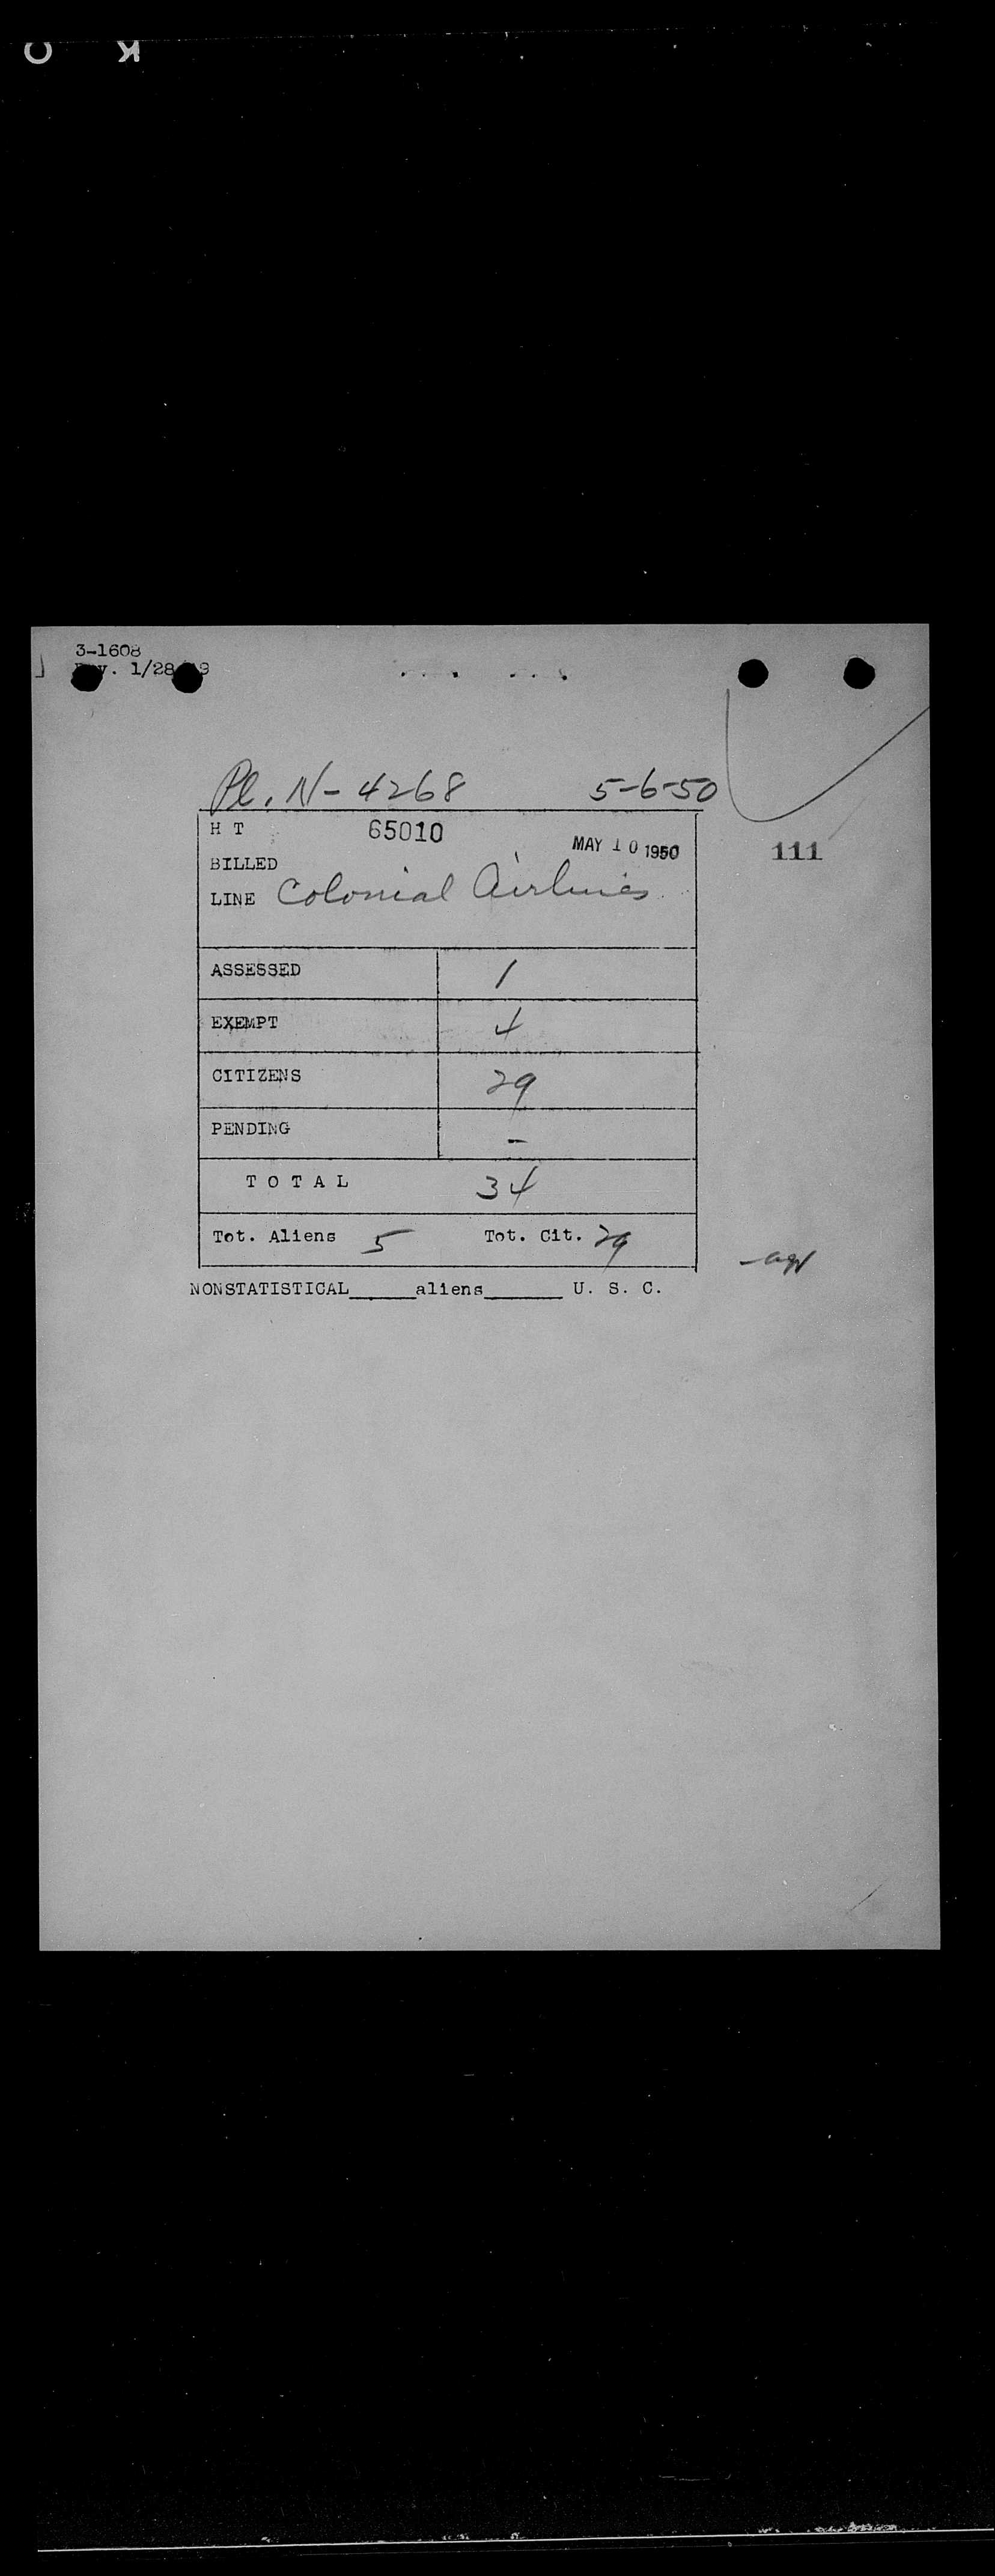 3-1608
1/28
Pl. N-4268 5-6-50
H T 65010
MAY 10 1950 111
BILLED
LINE Colonial Airlines
ASSESSED 1
EXEMPT 4
CITIZENS 29
PENDING -
TOTAL 34
Tot. Aliens 5 Tot. Cit. 29
NONSTATISTICAL_____aliens______ U. S. C.